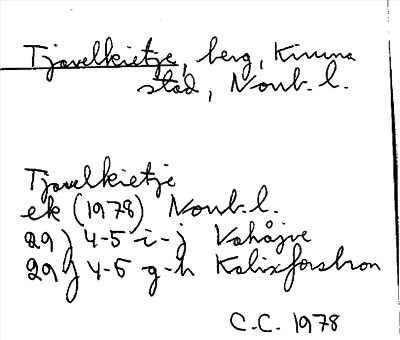 Tjavelkietje, berg, Kiruna
stad, Norrb. l.
Tjavelkietje
ek (1978) Norrb. l.
29 J 4-5 i-j Vahåjve
29 J 4-5 g-h Kalixforsbron
C.C. 1978